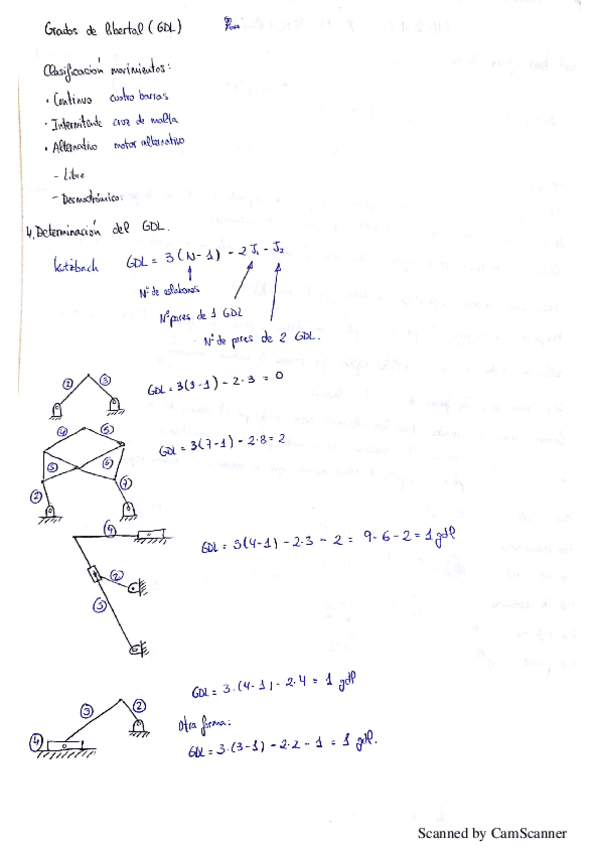 Grados de libertad (GDL)
Clasificación movimientos:
• Continuo cuatro barras
• Intermitente cruz de malta
• Alternativo motor alternativo
- Libre
- Desmodrómico:
4. Determinación del GDL.
Kutzbach GDL = 3(N-1) - 2J₁ - J₂
Nº de eslabones
Nº pares de 1 GDL
Nº de pares de 2 GDL.
② ③ GDL = 3(3-1) - 2·3 = 0
④ ⑤
③ ⑥ GDL = 3(7-1) - 2·8 = 2
② ⑦
④
GDL = 3(4-1) - 2·3 - 2 = 9-6-2 = 1 gdl
②
③
GDL = 3·(4-1) - 2·4 = 1 gdl
③ ②
Otra forma:
④ GDL = 3·(3-1) - 2·2 - 1 = 1 gdl.
Scanned by CamScanner